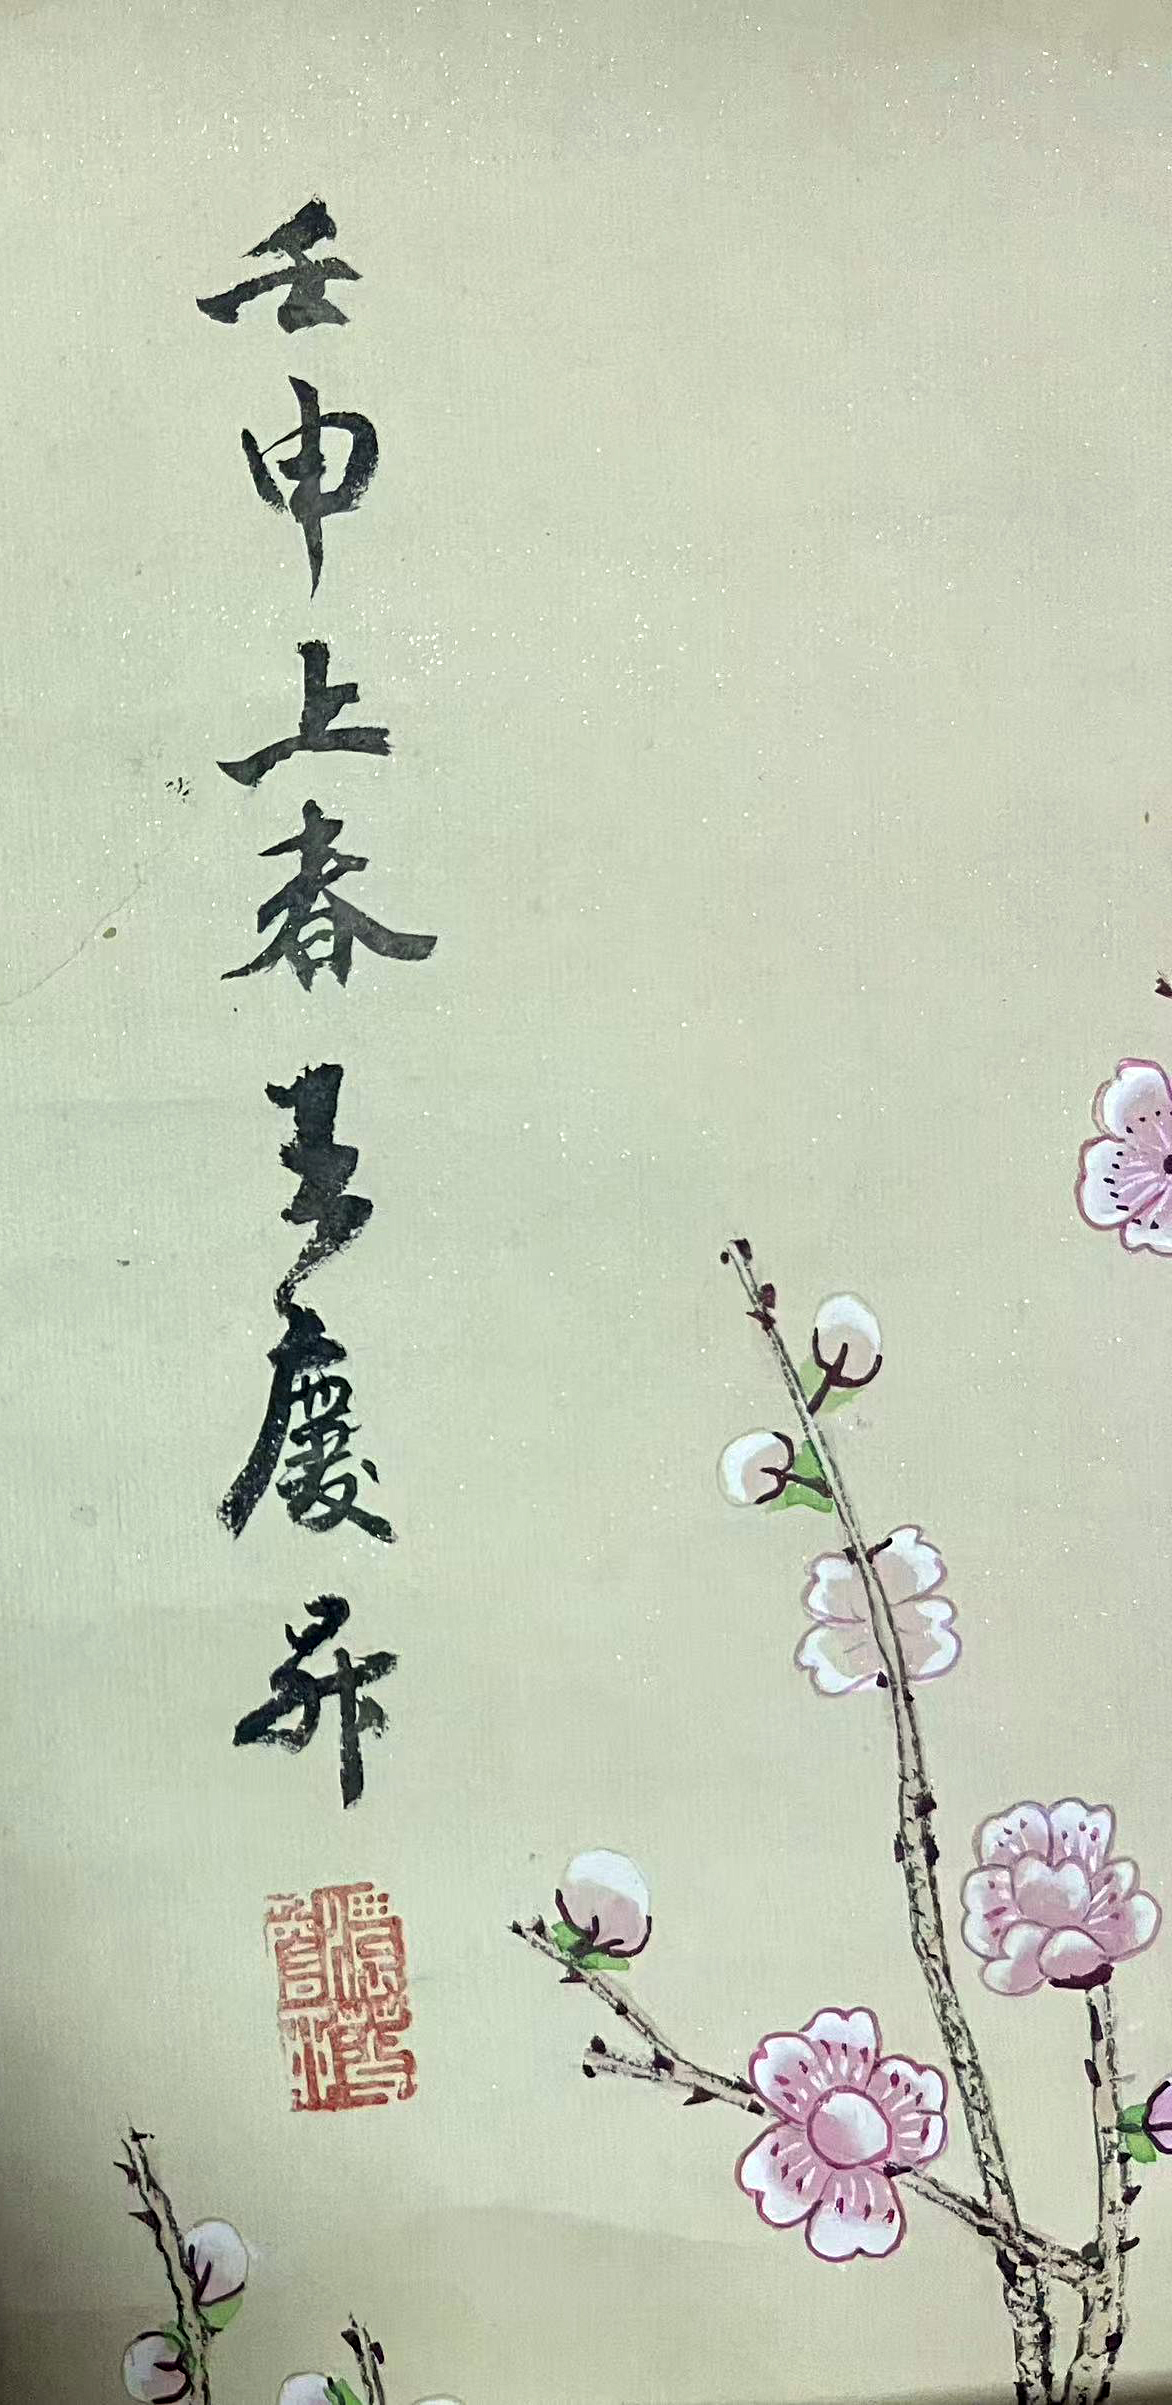 壬申上春吴慶昇